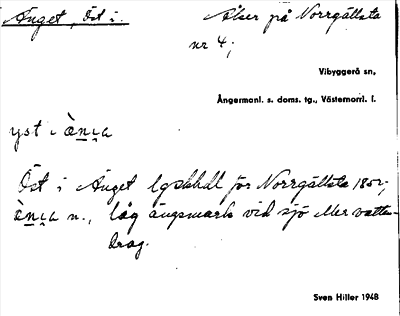 Änget, Öst i.
Åker på Norrgällsta
nr 4;
Vibyggerå sn,
Ångermanl. s. doms. tg., Västernorrl. l.
yst i
Öst i Änget för Norrgällsta
n., låg ängsmark vid sjö eller vatten-
drag.
Sven Hiller 1948